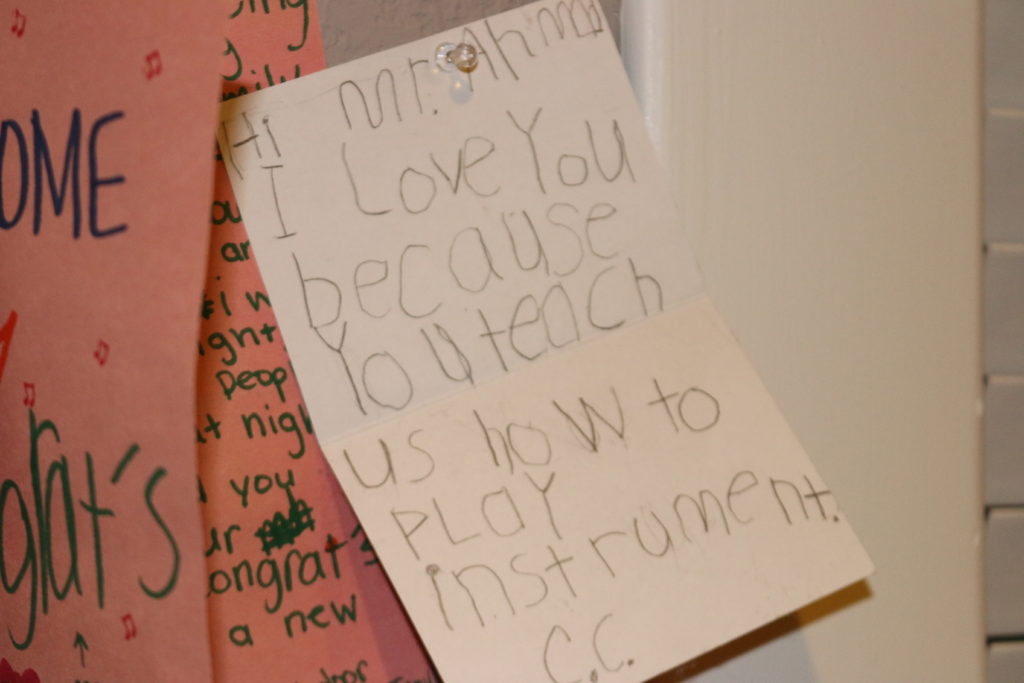 OME
grat's
ing
y
mily
ou
ar
#i w
ight
peop
t nigh
you
ur
ongrat's
a new
Hi Mr. Ahmd
I Love You
because
You teach
us how to
PLAY
instrument.
C.C.